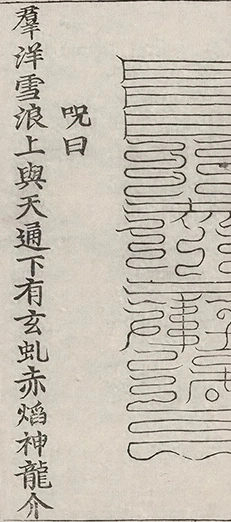 呪曰
羣洋雪浪上與天通下有玄虬赤熖神龍介